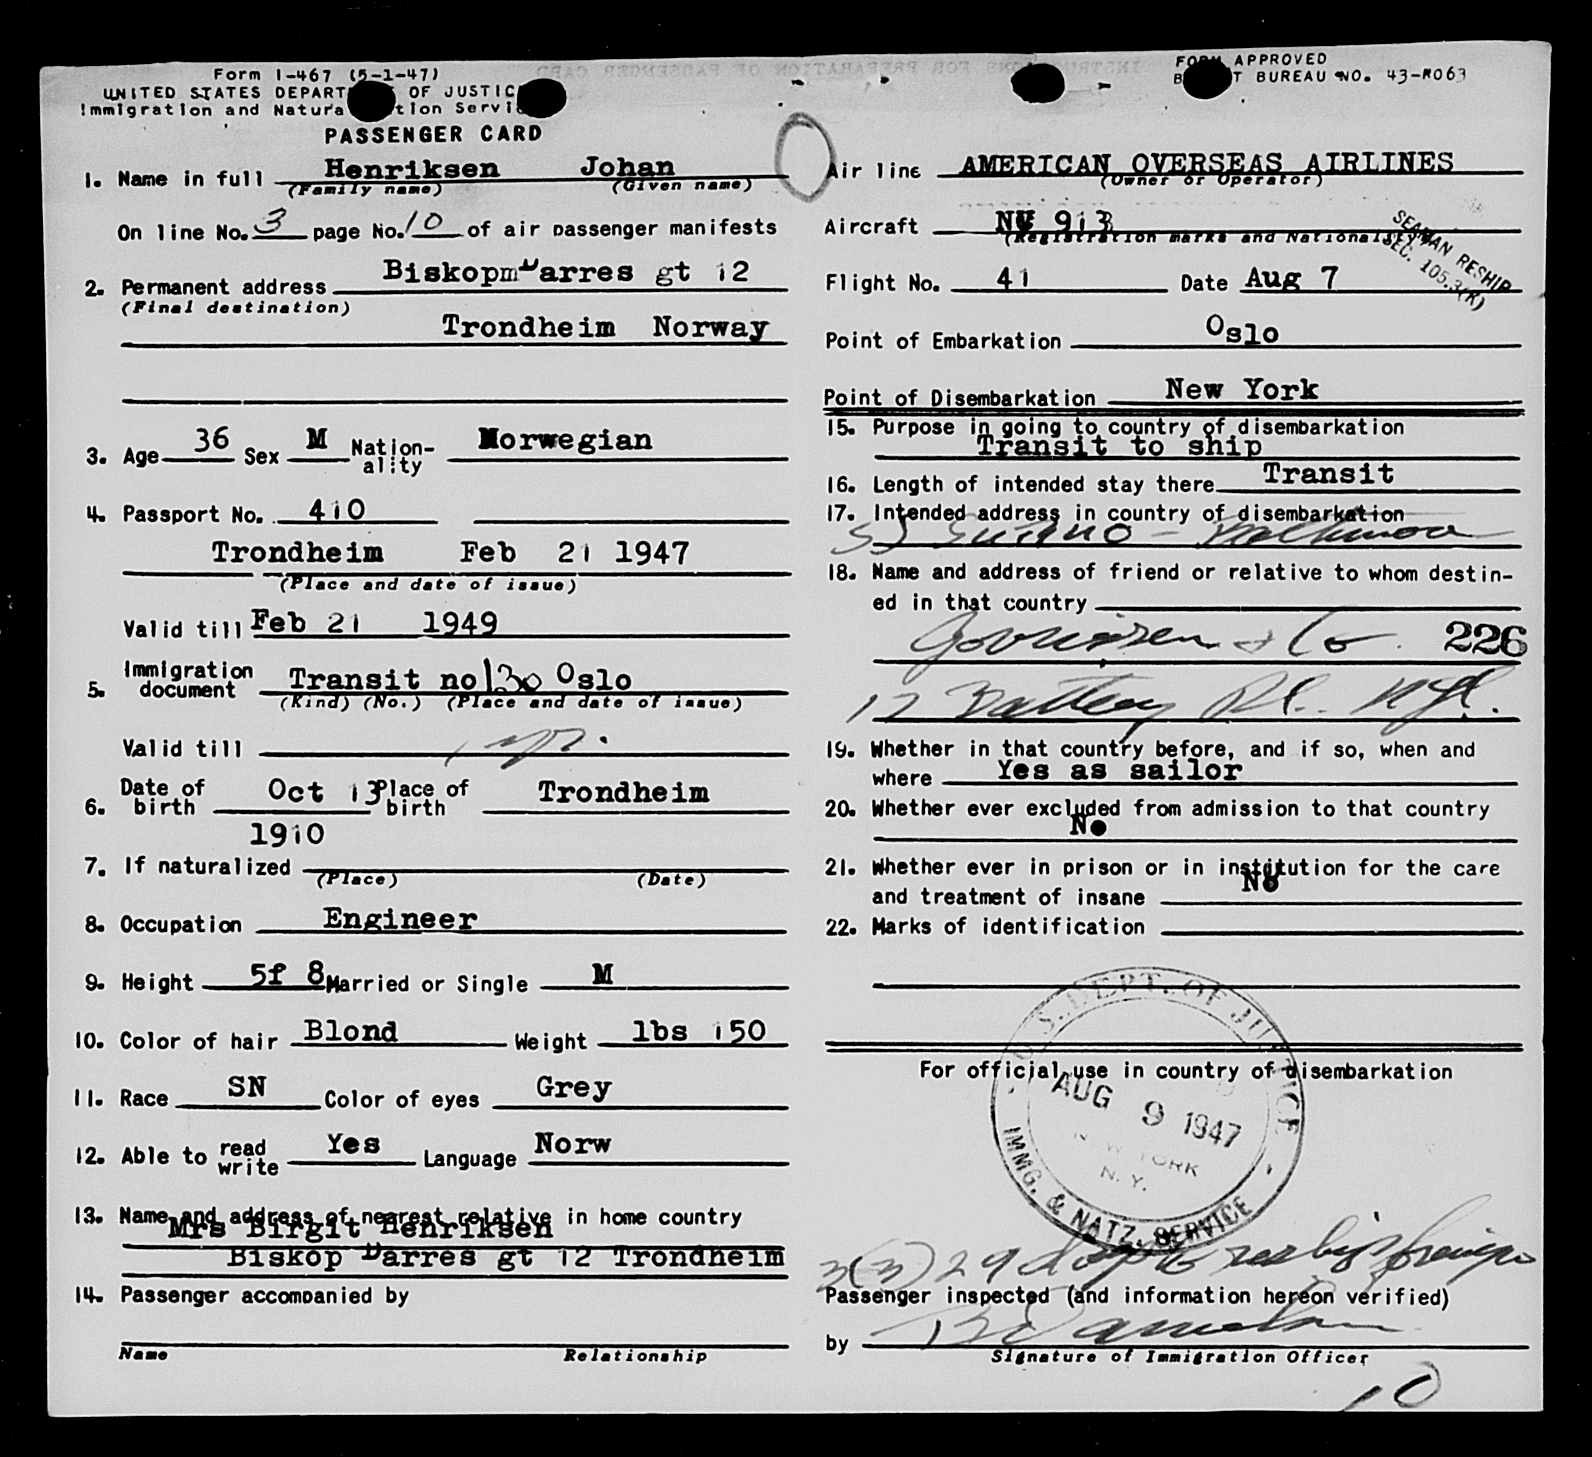 Form I-467 (5-1-47)
UNITED STATES DEPART OF JUSTIC
Immigration and Natura tion Servi
PASSENGER CARD
1. Name in full Henriksen Johan
(Family name) (Given name)
On line No. 3 page No. 10 of air passenger manifests
2. Permanent address Biskop Darres gt 12
(Final destination)
Trondheim Norway
3. Age 36 Sex M Nation-ality Norwegian
4. Passport No. 410
Trondheim Feb 21 1947
(Place and date of issue)
Valid till Feb 21 1949
5. Immigration document Transit no 130 Oslo
(Kind) (No.) (Place and date of issue)
Valid till
6. Date of birth Oct 13 Place of birth Trondheim
1910
7. If naturalized
(Place) (Date)
8. Occupation Engineer
9. Height 5f 8 Married or Single M
10. Color of hair Blond Weight lbs 150
11. Race SN Color of eyes Grey
12. Able to read write Yes Language Norw
13. Name and address of nearest relative in home country
Mrs Birgit Henriksen
Biskop Darres gt 12 Trondheim
14. Passenger accompanied by
Name Relationship
FORM APPROVED
B T BUREAU NO. 43-R063
Air line AMERICAN OVERSEAS AIRLINES
(Owner or Operator)
Aircraft 913
(Registration marks and Nationality)
SEAMAN RESHIP
SEC. 105.3(K)
Flight No. 41 Date Aug 7
Point of Embarkation Oslo
Point of Disembarkation New York
15. Purpose in going to country of disembarkation
Transit to ship
16. Length of intended stay there Transit
17. Intended address in country of disembarkation
SS
18. Name and address of friend or relative to whom destin-
ed in that country
& Co. 226
17 Battery Pl.
19. Whether in that country before, and if so, when and
where Yes as sailor
20. Whether ever excluded from admission to that country
No
21. Whether ever in prison or in institution for the care
and treatment of insane No
22. Marks of identification
For official use in country of disembarkation
U.S. DEPT. OF JUSTICE
AUG 9 1947
NEW YORK
N. Y.
IMMG. & NATZ. SERVICE
3(3) 29
Passenger inspected (and information hereon verified)
by
Signature of Immigration Officer
10